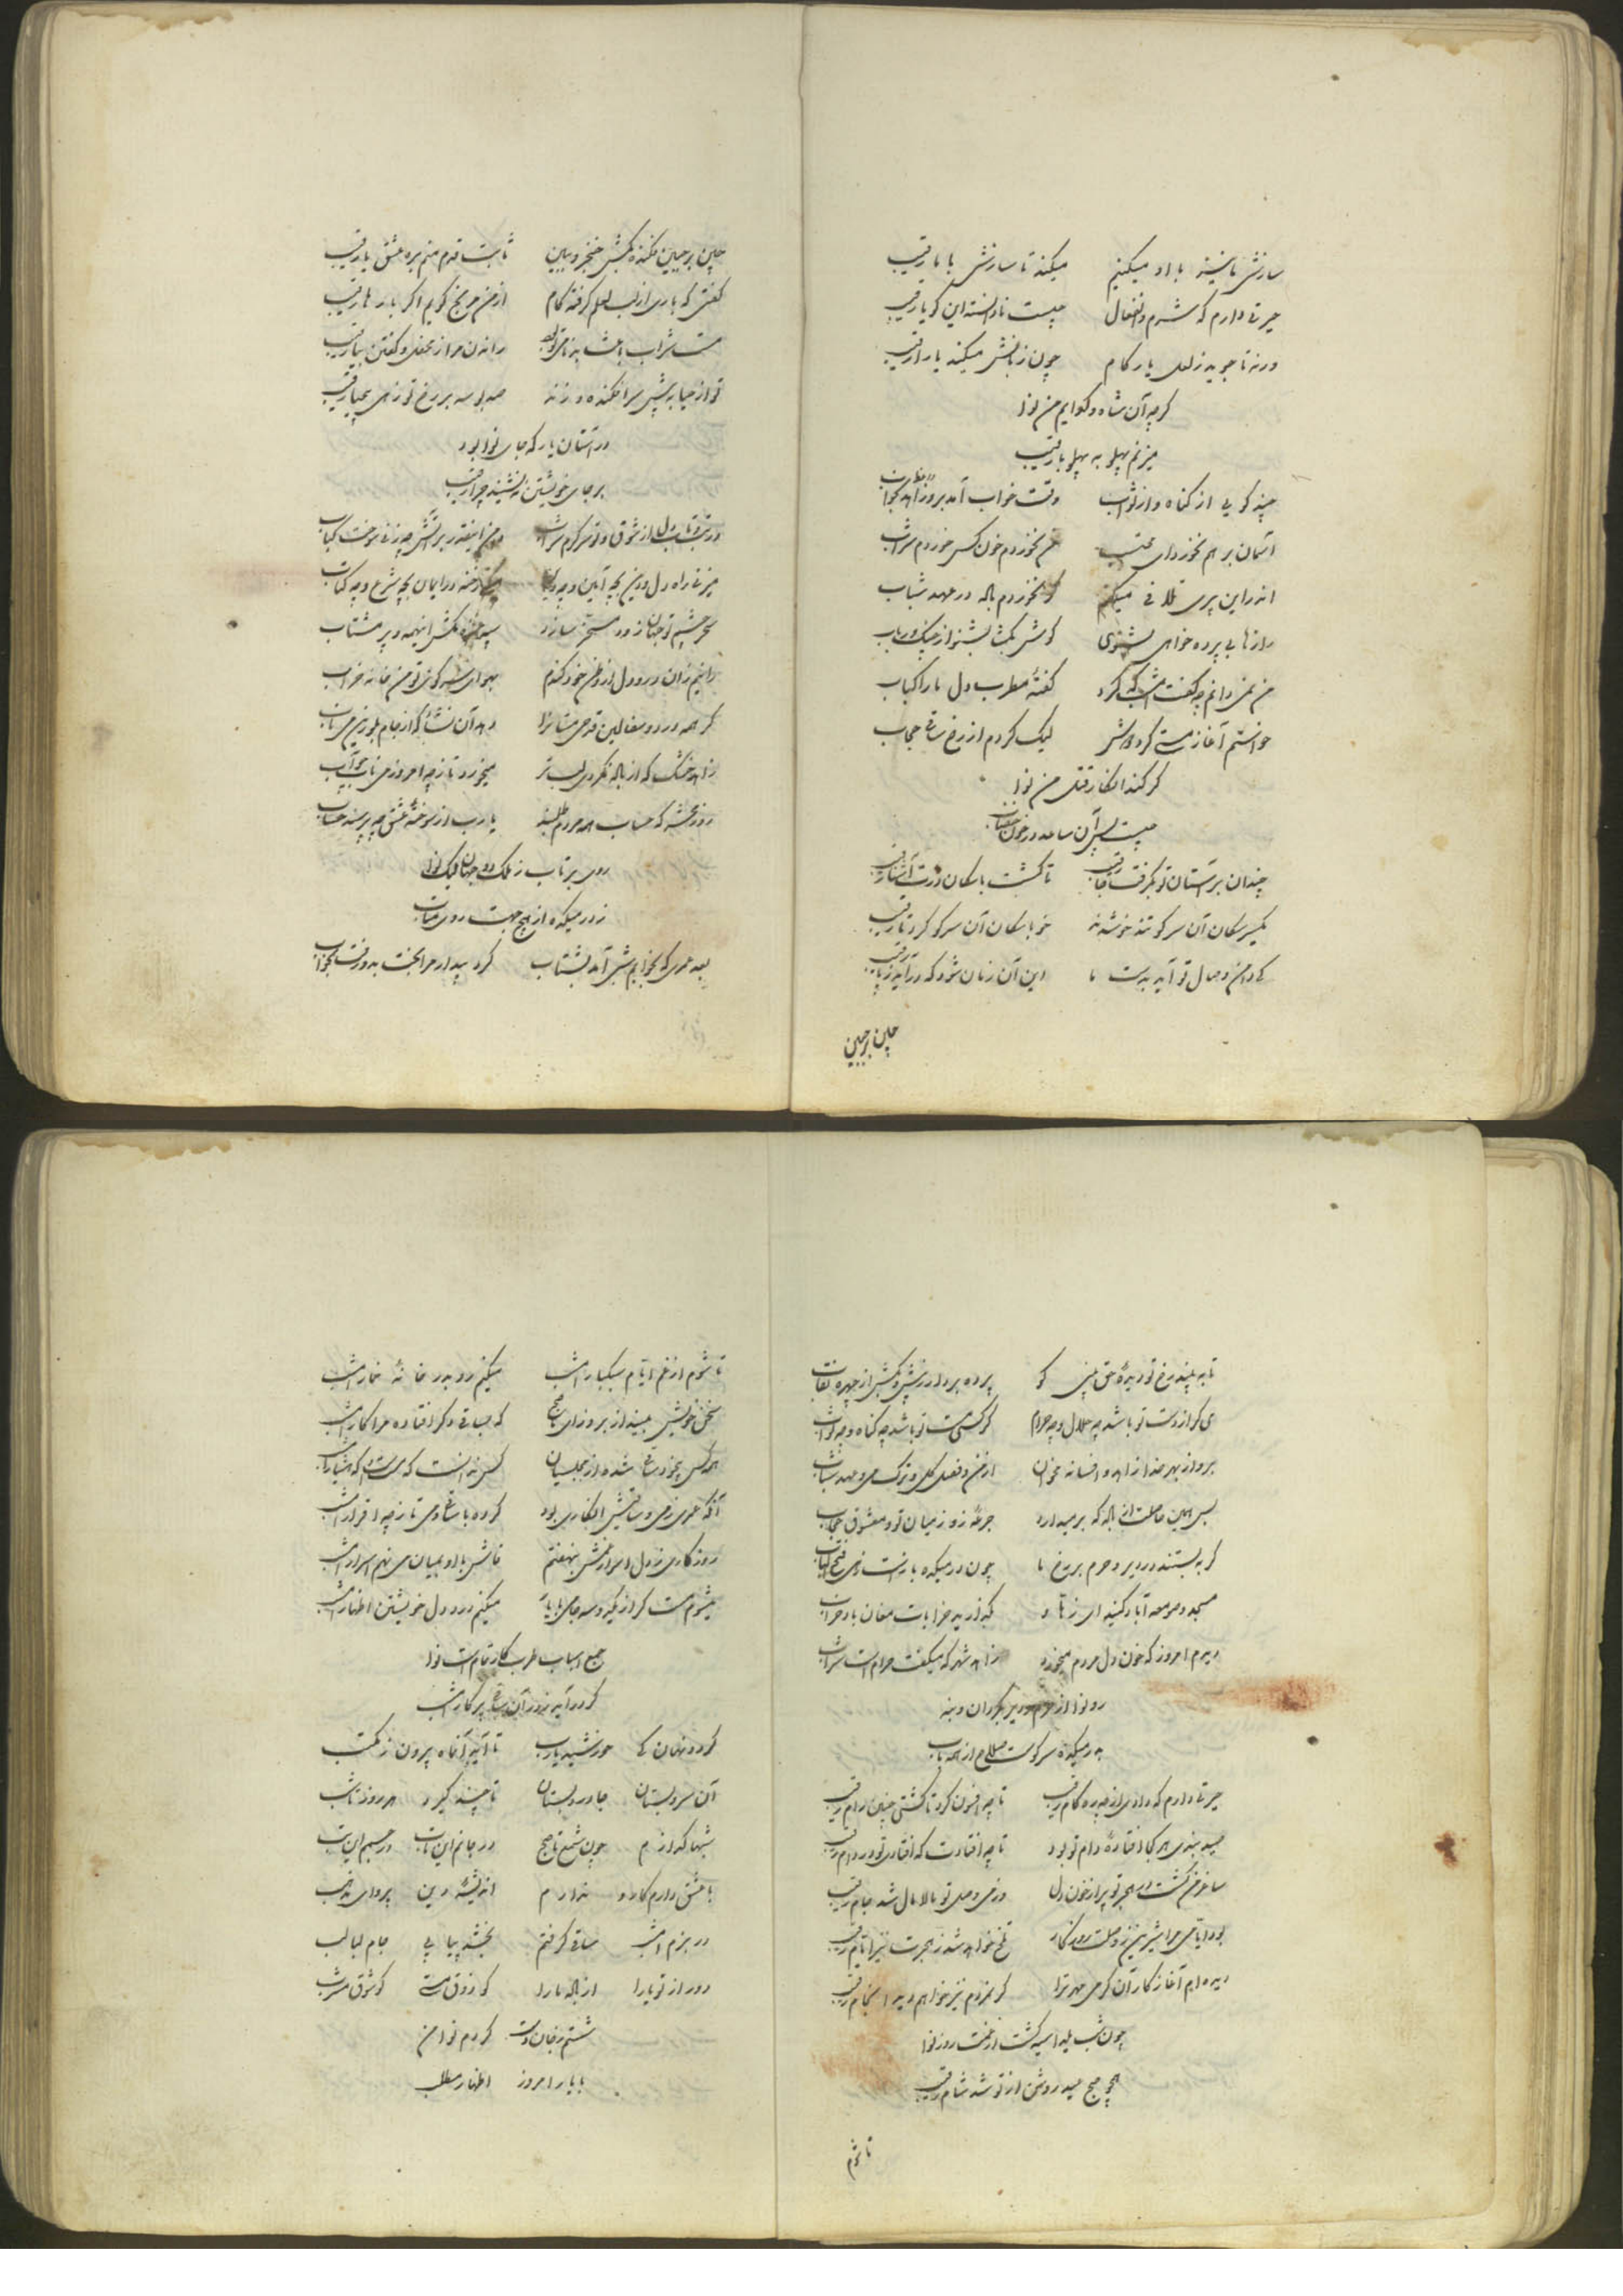 سازش ما نیز با او میکنیم میکند تا سازش با ما رقیب
حیرتی دارم که شرم و انفعال چیست نادانسته این کو یا رقیب
ورنه تا جوید ز لعل یار کام چون زبانش میکند یارا رقیب
کرچه آن شاه و کدایم من نوا
میزنم پهلو به پهلو با رقیب
چند کویی از کناه و از ثواب وقت خواب آمد
آسمان بر هم نخورد ای محتسب می نخوردم خون کس خوردم شراب
اندر این پیری تلافی میکنم کر نخوردم باده در عهد شباب
رازها بی پرده خواهی بشنوی کوش بکشا بشنو از چنک و رباب
من نمی دانم چه کفت امشب که کرد کفتهٔ مطرب دل ما را کباب
خواستم آغاز مستی کردمش لیک کردم از رخ ساقی حجاب
کر کند انکار قتل من نوا
چیست پس آن ساعد در خون خضاب
چندان بر آستان تو بگرفت جا رقیب تا کشت با سکان درت آشنا رقیب
یکسر سکان آن سر کو تند خو شدند خو با سکان آن سر کو کرد تا رقیب
کی دامن وصال تو آید بدست ما این آن زمان شود که درآید ز پا رقیب
چین بر جبین
چین بر جبین فکنده بکش خنجر و ببین ثابت قدم منم بره عشق یا رقیب
کفتی که یاری از لب لعلم کرفته کام از من مرنج کویم اکر بارها رقیب
مست شراب راندن مرا ز محفل و کفتن بیا رقیب
تو از حیا به پیش سر افکنده و زند صد بوسه بر رخ تو زهی بیحیا رقیب
در آستان یار که جای نوا بود
بر جای خویشتن ننشیند چرا رقیب
در تب و تاب دل از شوق و تو سرکرم شراب
میزنی راه دل و دین بچه آیین و چه کیش در ایمان بچه شرع و چه کتاب
سحر چشم تو جهان زود مسخر سازد
کر همه درد و سفالین قدحی مستانرا دهد آن نشأه که از جام بلورین می ناب
زاهد خشک که از باده نکردی لب تر میخورد تا ز چه امروز می ناب چو آب
روز محشر که حساب همه مردم طلبند یا رب از سوختهٔ عشق چه پرسند حساب
روی بر تاب ز ملک دو جهان لیک نوا
ز در میکده از هیچ جهت روی متاب
بعد عمری که بخوابم شبی آمد بشتاب کرد بیدار مرا بخت بد و رفت بخواب
تا به بیند رخ تو دیدهٔ حق بینی کو پرده بردار ز پیش و بکش از چهره نقاب
می کر از دست تو باشد چه حلال و چه حرام کر کشی مست تو باشد چه کناه و چه ثواب
برو از بهر خدا زاهد و افسانه مخوان از من و فصل کل و ترک می و عهد شباب
بس همین خاصیت از باده که بر میدارد جرعهٔ زو ز میان تو و معشوق حجاب
کر به بستند در دیر و حرم بر رخ ما چون در میکده باز است زهی فتح الباب
مسجد و صومعه آباد کنید ای زهاد که ز می خرابات مغان باد خراب
دیدم امروز که خون دل مردم میخورد زاهد شهر که میکفت حرامست شراب
رو نوا از حرم و دیر بکردان و بنه
به در میکده سر کوست صلاح از همه باب
حیرتی دارم که دادی از چه رو کام رقیب تا چه افسون کرد تا کشتی چنین رام رقیب
صید بندی هر کجا افتادهٔ دام تو بود تا چه افتادت که افتادی تو در دام رقیب
ساغر من کشت در هجر تو پر از خون دل وز می وصل تو مالامال شد جام رقیب
بود ایامی مرا شیرین ز وصلت روزکار تلخ خواهد شد ز هجرت نیز ایام رقیب
دیده ام آغاز کار آن کرمی مهر ترا کر نمردم نیز خواهم دید انجام رقیب
چون شب یلدا سیه کشت از غمت روز نوا
همچو صبح عید روشن از تو شد شام رقیب
تا شوم
تا شوم از غم ایام سبکبار امشب میکنم رو بدر خانهٔ خمار امشب
سخن خویش مینداز بروز ای ناصح که بساقی دکر افتاده مرا کار امشب
همه کس بیخود ساقی شده از مجلسیان کس ندانست که مست که هشیار امشب
آنکه عمری ز می و ساقیش انکاری بود کرده با ساقی و می تا ز چه اقرار امشب
روزکاری ز دل اسرار غمش بنهفتم فاش با او بمیان می نهم اسرار امشب
میشوم مست کر از کریه و میکنم درد دل خویشتن اظهار امشب
جمع اسباب طرب کار تمامست نوا
کر درآید ز در آن ساقی پرکار امشب
کردد نهان کی خورشید یا رب تا آید آنماه بیرون ز مکتب
آن سرو بستان جا در دبستان تا چند کیرد هر روز تا شب
شبها که دارم چون شمع تا صبح در جانم این تاب در جسمم این تب
با عشق دارم کار و ندارم اندیشهٔ دین پروای مذهب
در بزم امشب ساقی کرفتم بخشد پیاپی جام لبالب
دور از تو یارا از باده ما را کو ذوق مستی کو شوق مشرب
شستم ز جان دست کردم نوا من
با یار امروز اظهار مطلب